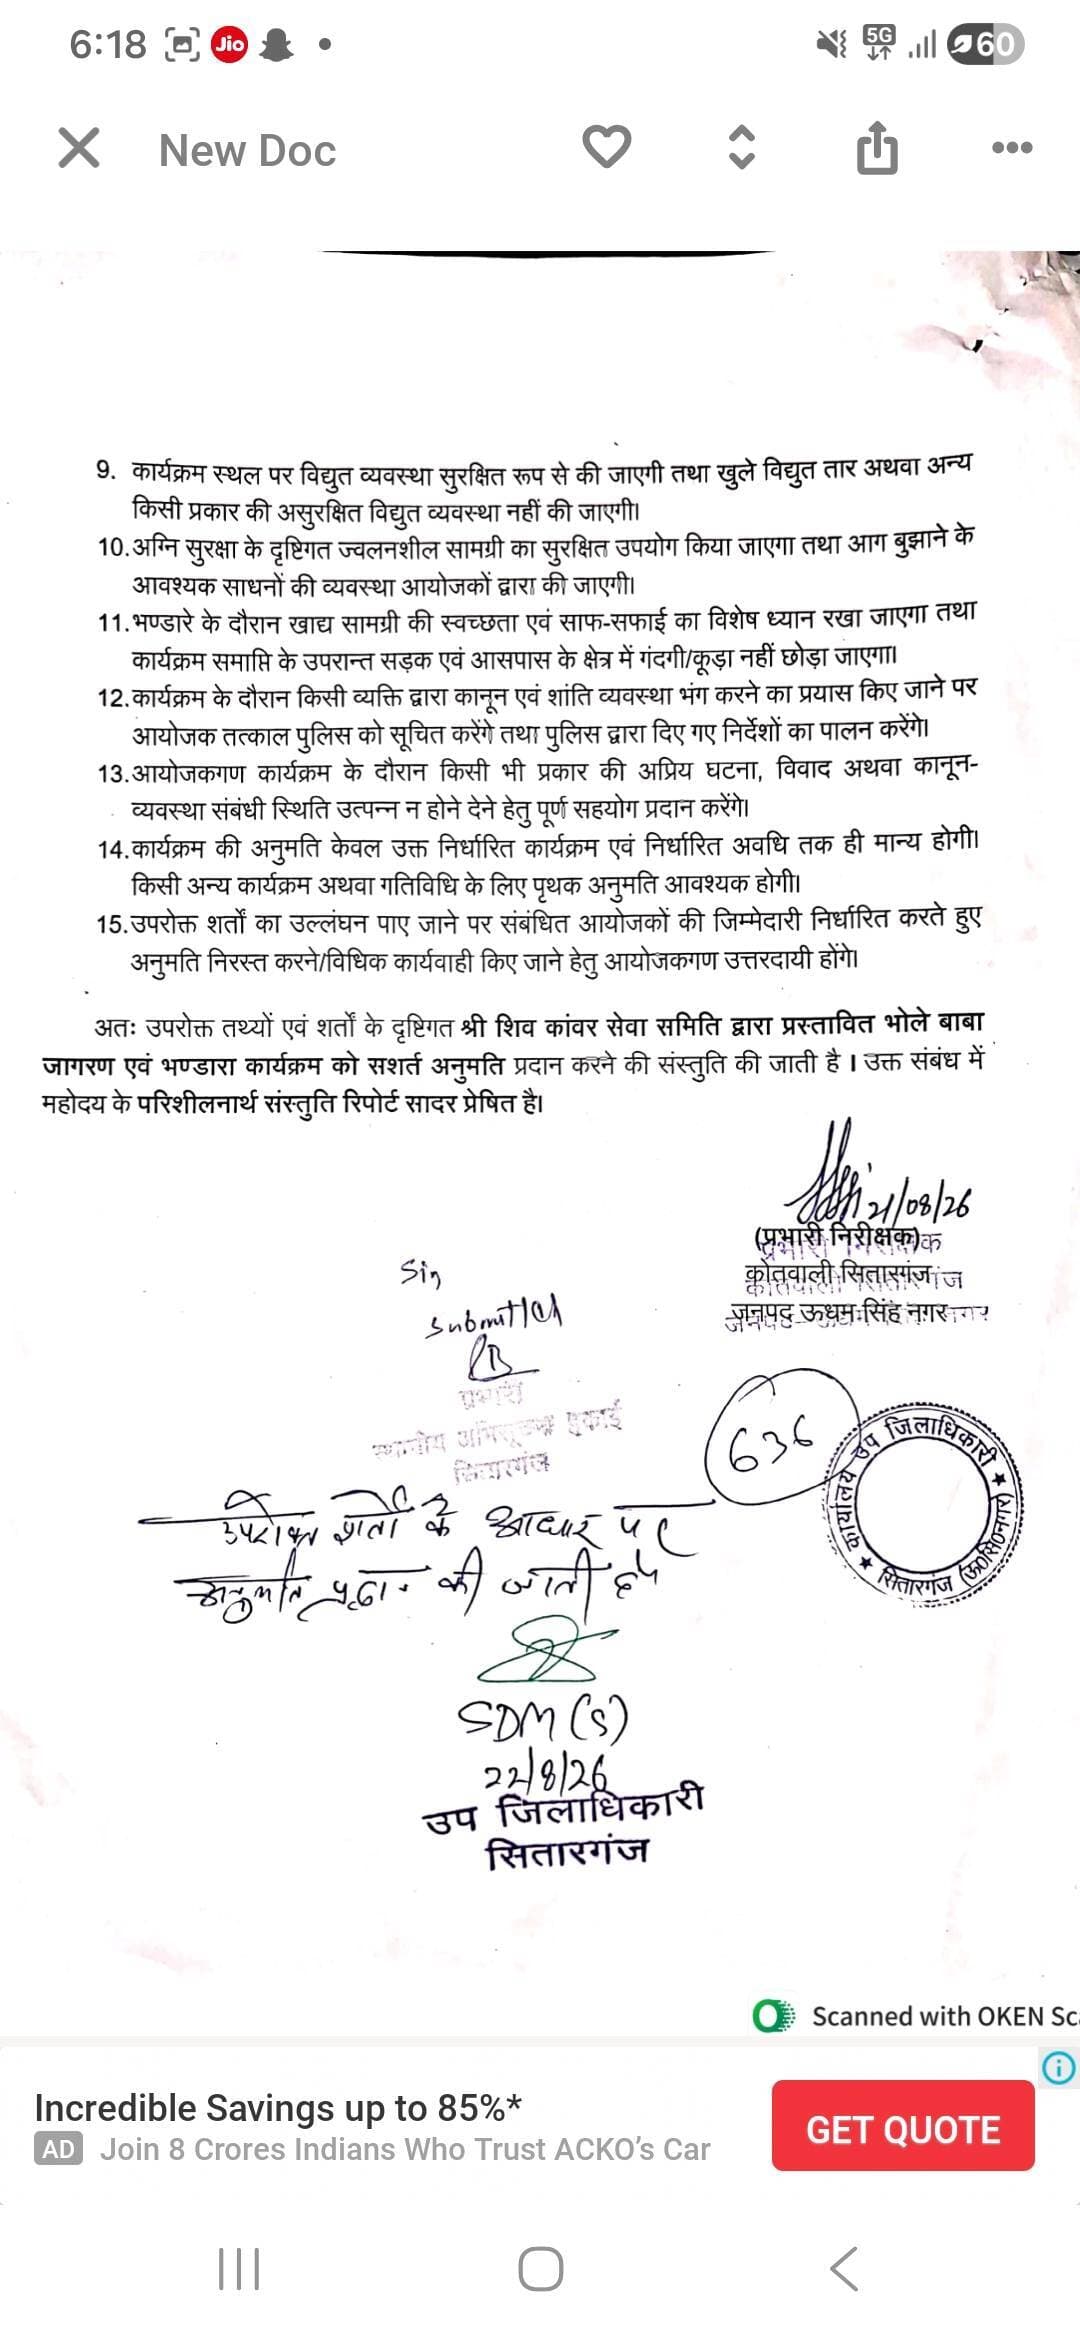 6:18
Jio
5G
60
New Doc
9. कार्यक्रम स्थल पर विद्युत व्यवस्था सुरक्षित रूप से की जाएगी तथा खुले विद्युत तार अथवा अन्य
किसी प्रकार की असुरक्षित विद्युत व्यवस्था नहीं की जाएगी।
10. अग्नि सुरक्षा के दृष्टिगत ज्वलनशील सामग्री का सुरक्षित उपयोग किया जाएगा तथा आग बुझाने के
आवश्यक साधनों की व्यवस्था आयोजकों द्वारा की जाएगी।
11. भण्डारे के दौरान खाद्य सामग्री की स्वच्छता एवं साफ-सफाई का विशेष ध्यान रखा जाएगा तथा
कार्यक्रम समाप्ति के उपरान्त सड़क एवं आसपास के क्षेत्र में गंदगी/कूड़ा नहीं छोड़ा जाएगा।
12. कार्यक्रम के दौरान किसी व्यक्ति द्वारा कानून एवं शांति व्यवस्था भंग करने का प्रयास किए जाने पर
आयोजक तत्काल पुलिस को सूचित करेंगे तथा पुलिस द्वारा दिए गए निर्देशों का पालन करेंगे।
13. आयोजकगण कार्यक्रम के दौरान किसी भी प्रकार की अप्रिय घटना, विवाद अथवा कानून-
व्यवस्था संबंधी स्थिति उत्पन्न न होने देने हेतु पूर्ण सहयोग प्रदान करेंगे।
14. कार्यक्रम की अनुमति केवल उक्त निर्धारित कार्यक्रम एवं निर्धारित अवधि तक ही मान्य होगी।
किसी अन्य कार्यक्रम अथवा गतिविधि के लिए पृथक अनुमति आवश्यक होगी।
15. उपरोक्त शर्तों का उल्लंघन पाए जाने पर संबंधित आयोजकों की जिम्मेदारी निर्धारित करते हुए
अनुमति निरस्त करने/विधिक कार्यवाही किए जाने हेतु आयोजकगण उत्तरदायी होंगे।
अतः उपरोक्त तथ्यों एवं शर्तों के दृष्टिगत श्री शिव कांवर सेवा समिति द्वारा प्रस्तावित भोले बाबा
जागरण एवं भण्डारा कार्यक्रम को सशर्त अनुमति प्रदान करने की संस्तुति की जाती है । उक्त संबंध में
महोदय के परिशीलनार्थ संस्तुति रिपोर्ट सादर प्रेषित है।
21/08/26
(प्रभारी निरीक्षक)
कोतवाली सितारगंज
जनपद ऊधम सिंह नगर
Sir
Submitted
प्रभारी
स्थानीय अभिसूचना इकाई
सितारगंज
636
कार्यालय उप जिलाधिकारी
सितारगंज (ऊ०सि०नगर)
उपरोक्त शर्तों के आधार पर
अनुमति प्रदान की जाती है।
SDM (S)
22/8/26
उप जिलाधिकारी
सितारगंज
Scanned with OKEN Sc
Incredible Savings up to 85%*
AD Join 8 Crores Indians Who Trust ACKO's Car
GET QUOTE